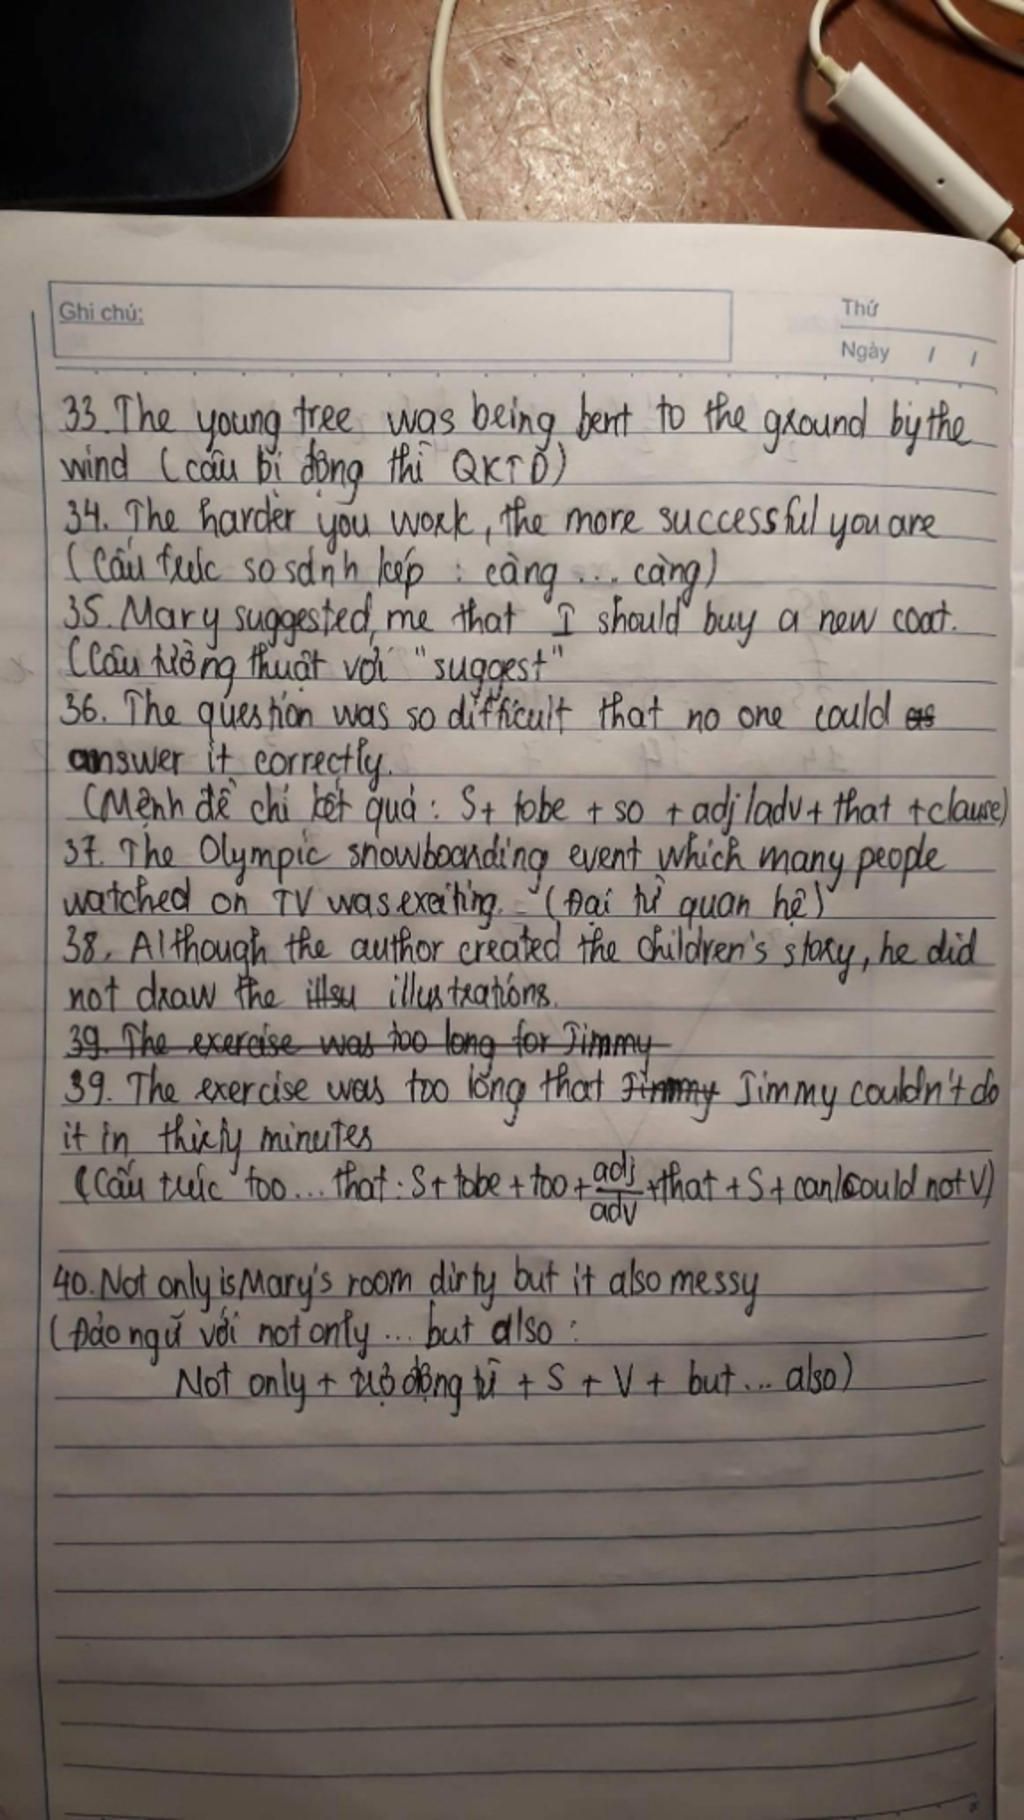 Ghi chú:
Thứ
Ngày / /
33. The young tree was being bent to the ground by the
wind (câu bị động thì QKTD)
34. The harder you work, the more successful you are
(Cấu trúc so sánh kép : càng ... càng)
35. Mary suggested me that I should buy a new coat.
(Câu tường thuật với "suggest"
36. The question was so difficult that no one could as
answer it correctly.
(Mệnh đề chỉ kết quả: S+ tobe + so + adj/adv + that + clause)
37. The Olympic snowboarding event which many people
watched on TV was exciting. (Đại từ quan hệ)
38. Although the author created the children's story, he did
not draw the illsu illustrations.
39. The exercise was too long for Jimmy
39. The exercise was too long that Jimmy Jimmy couldn't do
it in thirty minutes
(Cấu trúc too ... that : S + tobe + too + adj/adv + that + S + can/could not V)
40. Not only is Mary's room dirty but it also messy
(Đảo ngữ với not only ... but also :
Not only + trợ động từ + S + V + but ... also)